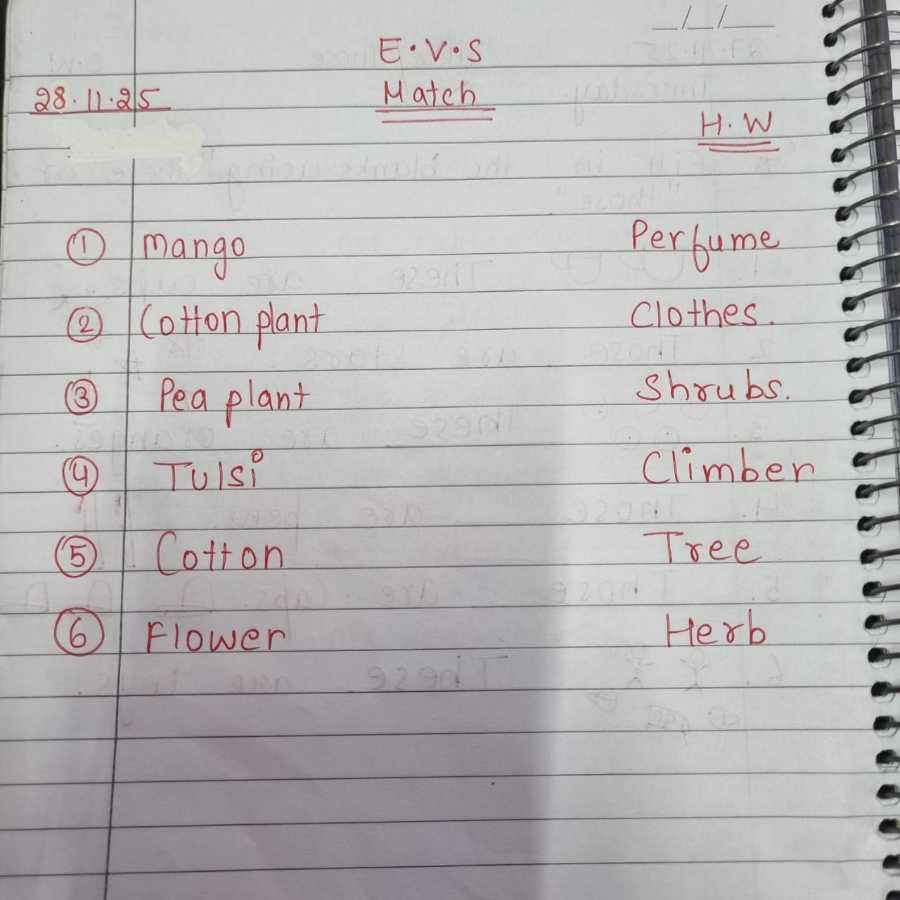 __/__/__
E·V·S
28·11·25 Match
H·W
① Mango Perfume
② Cotton plant Clothes.
③ Pea plant Shrubs.
④ Tulsi Climber
⑤ Cotton Tree
⑥ Flower Herb